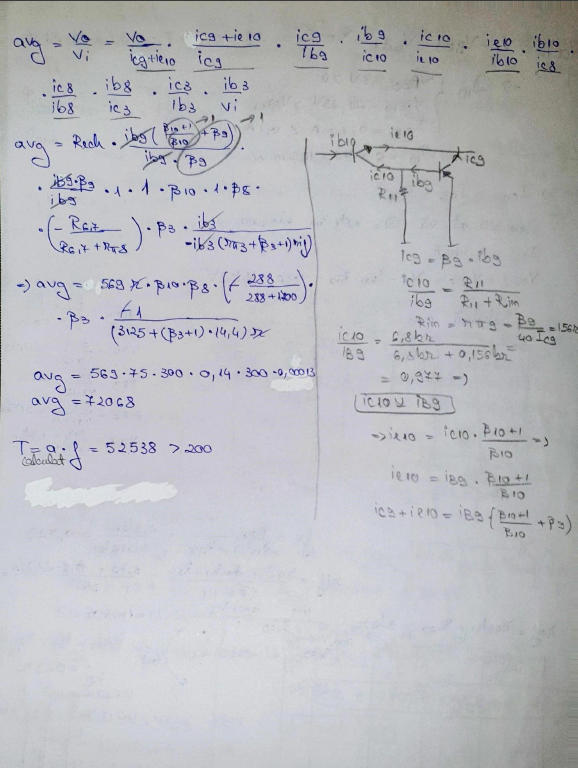 avg = Vo/Vi = Vo/(icg+ie10) · (icg+ie10)/icg · icg/ibg · ibg/ic10 · ic10/ie10 · ie10/ib10 · ib10/ic8 ·
· ic8/ib8 · ib8/ic3 · ic3/ib3 · ib3/Vi
avg = Rech · ibg((β10+1)/β10 + βg)/(ibg · βg) ·
→1 →1
· ibg·βg/ibg · 1 · 1 · β10 · 1 · β8 ·
· (- R6,7/(R6,7+Rπ8)) · β3 · ib3/(-ib3(rπ3+(β3+1)
=) avg = 569 · β10 · β8 · (- 288/(288+1200)) ·
· β3 · -1/((3125+(β3+1)·14,4)
avg = 569·75·300·0,14·300·0,00013
avg = 72068
T = a·f = 52538 > 200
calculat
ib10 ie10
icg
ic10 ibg
R11
icg = βg · ibg
ic10/ibg = R11/(R11+Rim)
Rim = rπg = βg/(40 Icg) =
ic10/iBg = 6,8kr/(6,8kr + 0,156kr) =
= 0,977 =)
ic10 ≃ iBg
=) ie10 = ic10 · (β10+1)/β10 =)
ie10 = iBg · (β10+1)/β10
icg+ie10 = iBg ((β10+1)/β10 + βg)